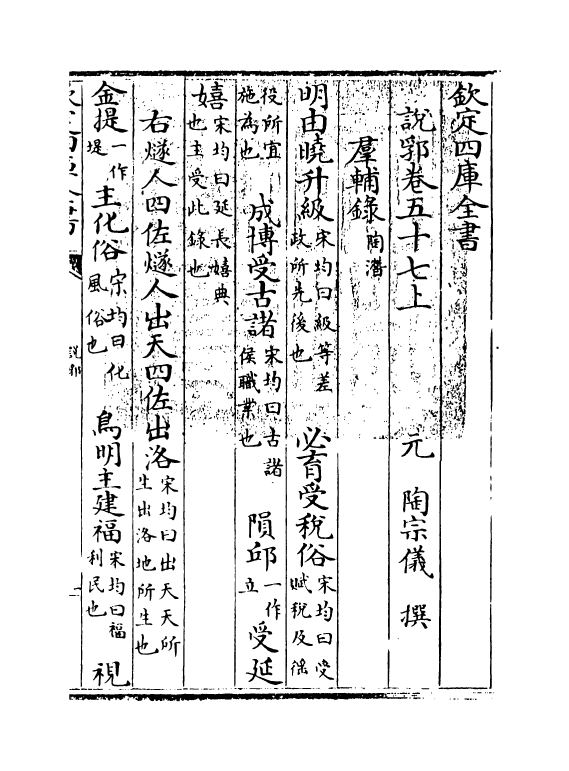 欽定四庫全書
說郛卷五十七上
元 陶宗儀 撰
羣輔錄陶潛
明由曉升級宋均曰級等差政所先後也 必育受稅俗宋均曰受賦稅及徭
役所宜施為也 成博受古諸宋均曰古諸侯職業也 隕邱一作立 受延
嬉宋均曰延長嬉典也主受此錄也
右燧人四佐燧人出天四佐出洛宋均曰出天天所生出洛地所生也
金提一作堤 主化俗宋均曰化風俗也 鳥明主建福宋均曰福利民也 視
說郛